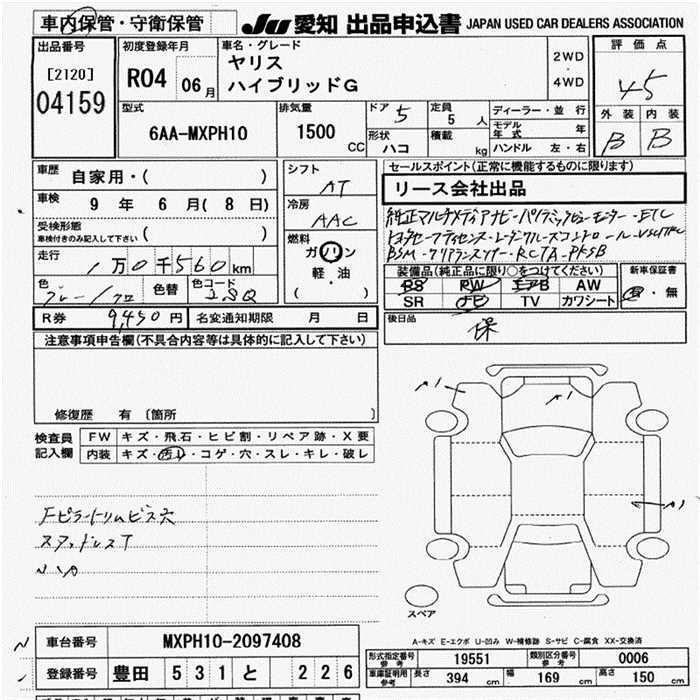 車内保管・守衛保管
JU 愛知 出品申込書 JAPAN USED CAR DEALERS ASSOCIATION
出品番号
[2120]
04159
初度登録年月
R04 06 月
車名・グレード
ヤリス
ハイブリッドG
2WD
・
4WD
評価点
4.5
外装 内装
B B
型式
6AA-MXPH10
排気量
1500 CC
ドア 5
形状 ハコ
定員 5 人
積載 kg
ディーラー・並行
モデル年式 年
ハンドル 左・右
車歴 自家用・( )
車検 9 年 6 月( 8 日)
受検形態
車検付きのみ記入して下さい ( )
走行 1万0千560km
色 グレー/クロ 色替 色コード
シフト AT
冷房 AAC
燃料
ガソリン
軽・油
( )
セールスポイント(正常に機能するものに限ります)
リース会社出品
純正マルチメディアナビ・パノラミックビューモニター・ETC
トヨタセーフティセンス・レーダークルーズコントロール・VSC/TRC
BSM・クリアランスソナー・RCTA・PKSB
装備品(純正品に限り○をつけてください)
PS PW エアB AW
SR ナビ TV カワシート
新車保証書
有・無
R券 9,450円 名変通知期限 月 日
後日品
保
注意事項申告欄(不具合内容等は具体的に記入して下さい)
修復歴 有 〔箇所 〕
検査員
記入欄
FW キズ・飛石・ヒビ割・リペア跡・X要
内装 キズ・汚レ・コゲ・穴・スレ・キレ・破レ
Fピラートリムビス穴
スタッドレスT
A1
A1
A1
スペア
A-キズ E-エクボ U-凹み W-補修跡 S-サビ C-腐食 XX-交換済
車台番号 MXPH10-2097408
登録番号 豊田 531 と 226
形式指定番号 参考 19551 類別区分番号 参考 0006
車庫証明用 参考 長さ 394 cm 幅 169 cm 高さ 150 cm